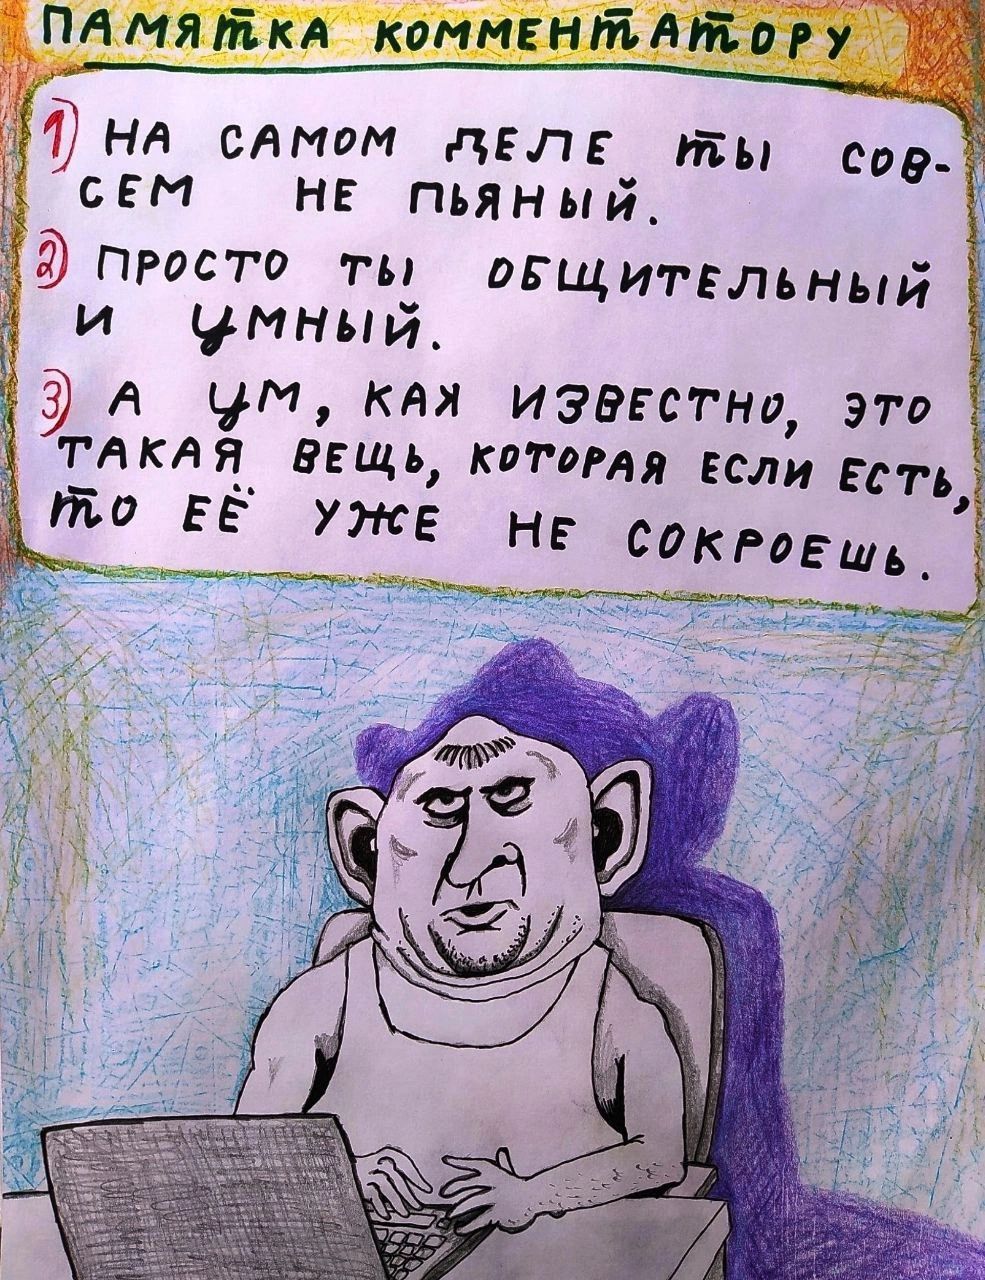 ПАМЯТКА КОММЕНТАТОРУ
1) НА САМОМ ДЕЛЕ ТЫ СОВ-
СЕМ НЕ ПЬЯНЫЙ.
2) ПРОСТО ТЫ ОБЩИТЕЛЬНЫЙ
И УМНЫЙ.
3) А УМ, КАК ИЗВЕСТНО, ЭТО
ТАКАЯ ВЕЩЬ, КОТОРАЯ ЕСЛИ ЕСТЬ,
ТО ЕЁ УЖЕ НЕ СОКРОЕШЬ.